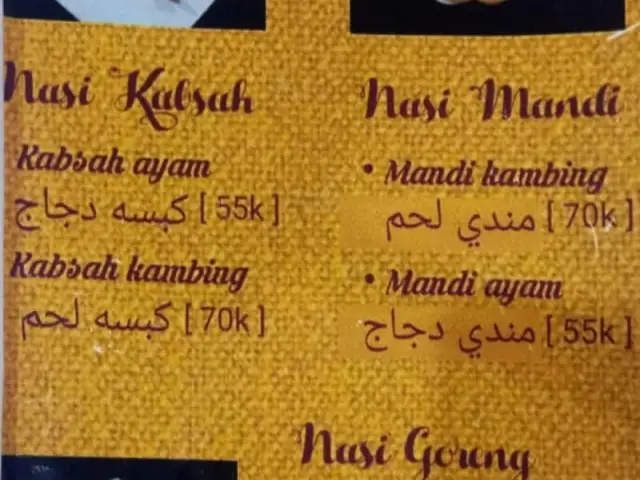 Nasi Kabsah
Kabsah ayam
كبسه دجاج [ 55k ]
Kabsah kambing
كبسه لحم [ 70k ]
Nasi Mandi
• Mandi kambing
مندي لحم [ 70k ]
• Mandi ayam
مندي دجاج [ 55k ]
Nasi Goreng